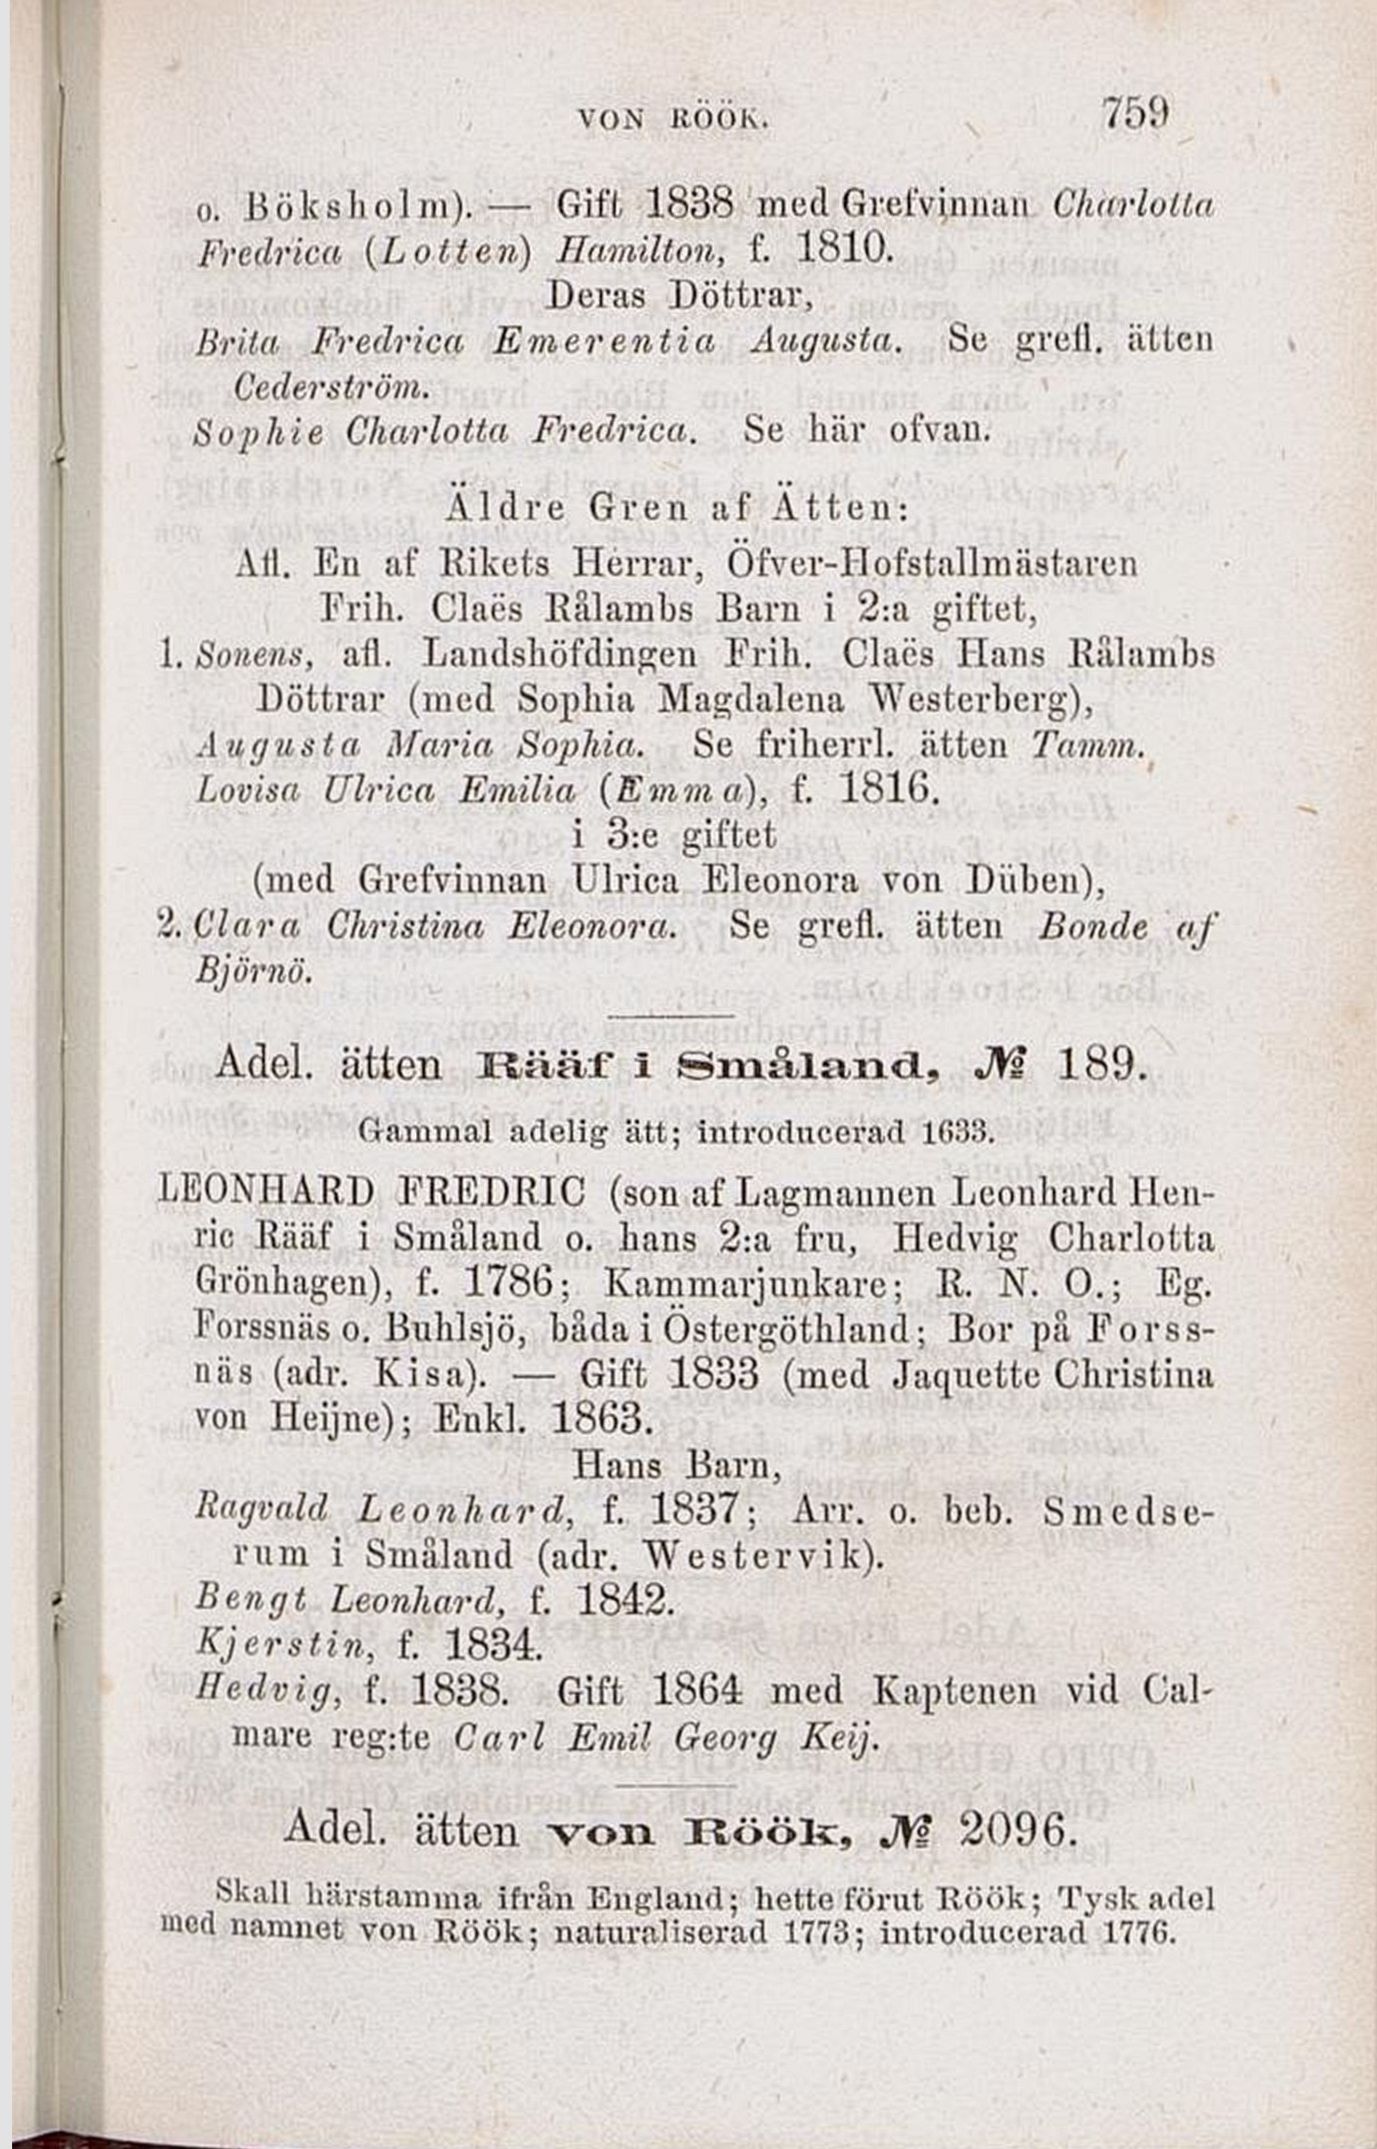 VON RÖÖK. 759
o. Böksholm). — Gift 1838 med Grefvinnan Charlotta
Fredrica (Lotten) Hamilton, f. 1810.
Deras Döttrar,
Brita Fredrica Emerentia Augusta. Se grefl. ätten
Cederström.
Sophie Charlotta Fredrica. Se här ofvan.
Äldre Gren af Ätten:
Afl. En af Rikets Herrar, Öfver-Hofstallmästaren
Frih. Claës Rålambs Barn i 2:a giftet,
1. Sonens, afl. Landshöfdingen Frih. Claës Hans Rålambs
Döttrar (med Sophia Magdalena Westerberg),
Augusta Maria Sophia. Se friherrl. ätten Tamm.
Lovisa Ulrica Emilia (Emma), f. 1816.
i 3:e giftet
(med Grefvinnan Ulrica Eleonora von Düben),
2. Clara Christina Eleonora. Se grefl. ätten Bonde af
Björnö.
Adel. ätten Rääf i Småland, № 189.
Gammal adelig ätt; introducerad 1633.
LEONHARD FREDRIC (son af Lagmannen Leonhard Hen-
ric Rääf i Småland o. hans 2:a fru, Hedvig Charlotta
Grönhagen), f. 1786; Kammarjunkare; R. N. O.; Eg.
Forssnäs o. Buhlsjö, båda i Östergöthland; Bor på Forss-
näs (adr. Kisa). — Gift 1833 (med Jaquette Christina
von Heijne); Enkl. 1863.
Hans Barn,
Ragvald Leonhard, f. 1837; Arr. o. beb. Smedse-
rum i Småland (adr. Westervik).
Bengt Leonhard, f. 1842.
Kjerstin, f. 1834.
Hedvig, f. 1838. Gift 1864 med Kaptenen vid Cal-
mare reg:te Carl Emil Georg Keij.
Adel. ätten von Röök, № 2096.
Skall härstamma ifrån England; hette förut Röök; Tysk adel
med namnet von Röök; naturaliserad 1773; introducerad 1776.